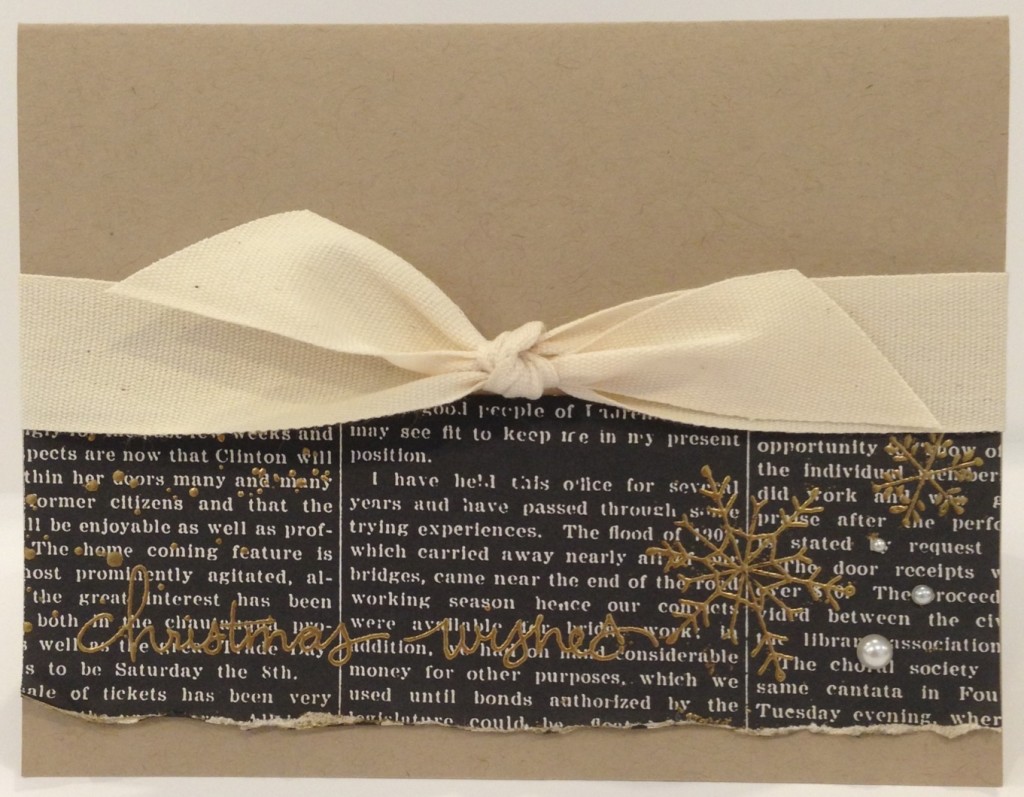 weeks and
pects are now that Clinton will
thin her doors many and many
ormer citizens and that the
ll be enjoyable as well as prof-
The home coming feature is
most prominently agitated, al-
the great interest has been
both in the
well as the
s to be Saturday the 8th.
ale of tickets has been very
good people of
may see fit to keep me in my present
position.
I have held this office for several
years and have passed through some
trying experiences. The flood of
which carried away nearly all
bridges, came near the end of the road
working season hence our convicts
were available for bridge work; in
addition, considerable
money for other purposes, which we
used until bonds authorized by the
legislature could be
opportunity
the individual
did work and
praise after the
is stated by request
The door receipts
over
between the
library association
The choral society
same cantata in
Tuesday evening,
christmas wishes